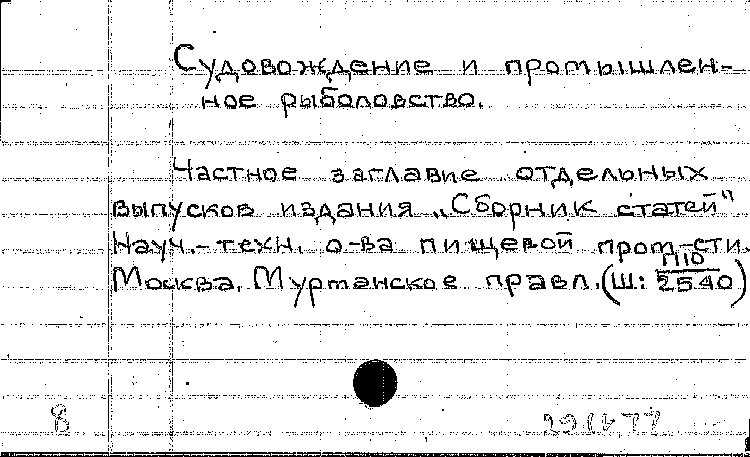 Судовождение и промышлен-
ное рыболовство.
Частное заглавие отдельных
выпусков издания „Сборник статей"
Науч.-техн. о-ва пищевой пром-сти.
Москва. Мурманское правл. (Ш: П10/2540)
8